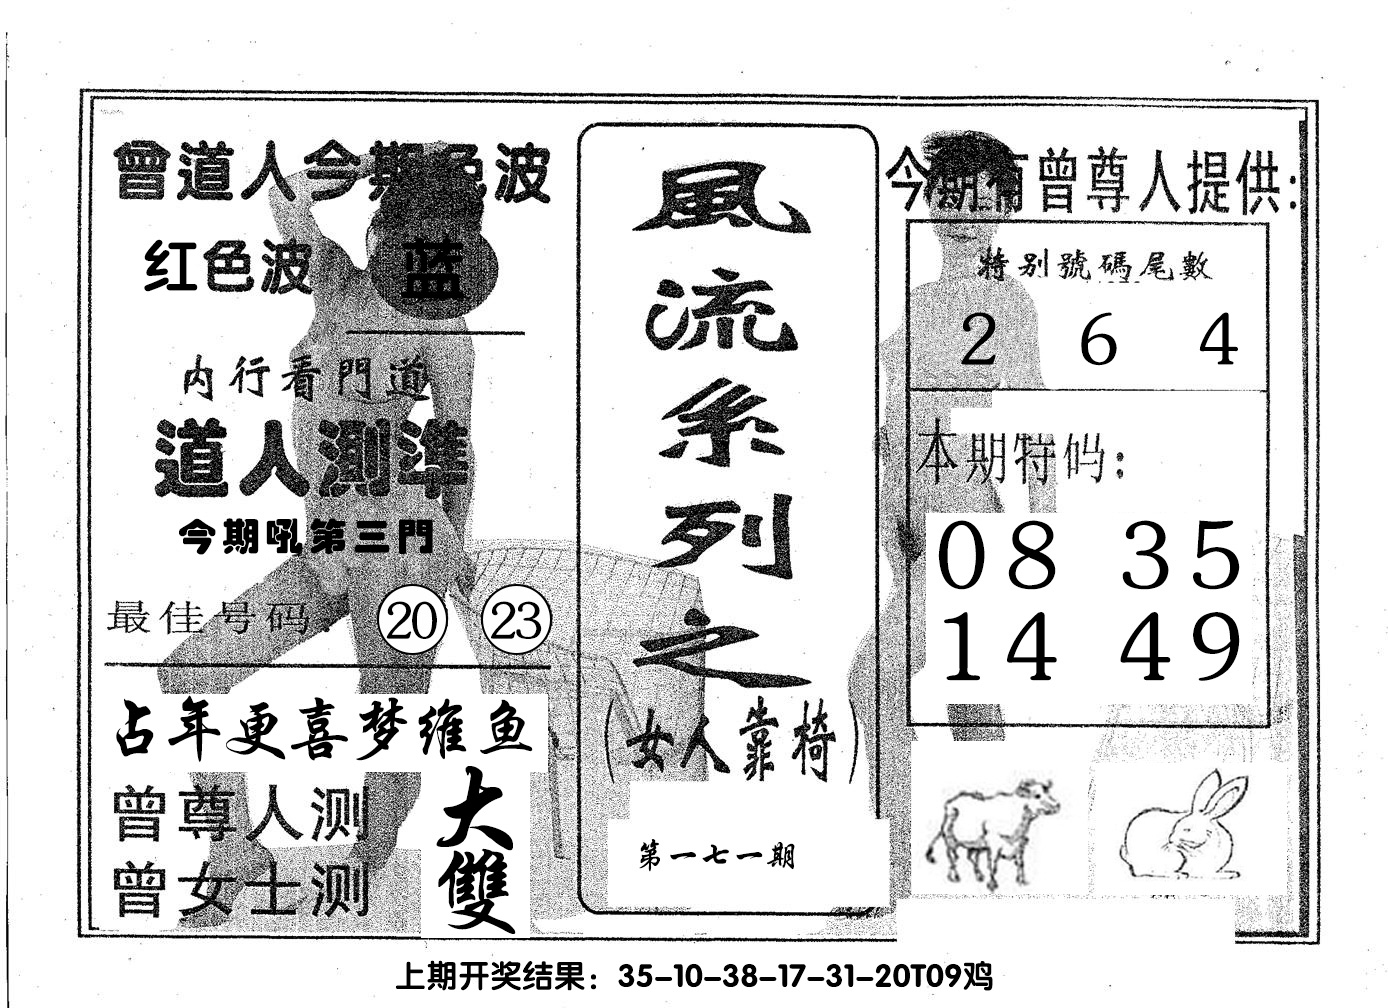 曾道人今期色波
红色波 蓝
内行看門道
道人測準
今期吼第三門
最佳号码: 20 23
占年更喜梦维鱼
曾尊人测 大
曾女士测 雙
風流系列之
(女人靠椅)
第一七一期
今期有曾尊人提供:
特别號碼尾數
2 6 4
本期特码:
08 35
14 49
上期开奖结果：35-10-38-17-31-20T09鸡